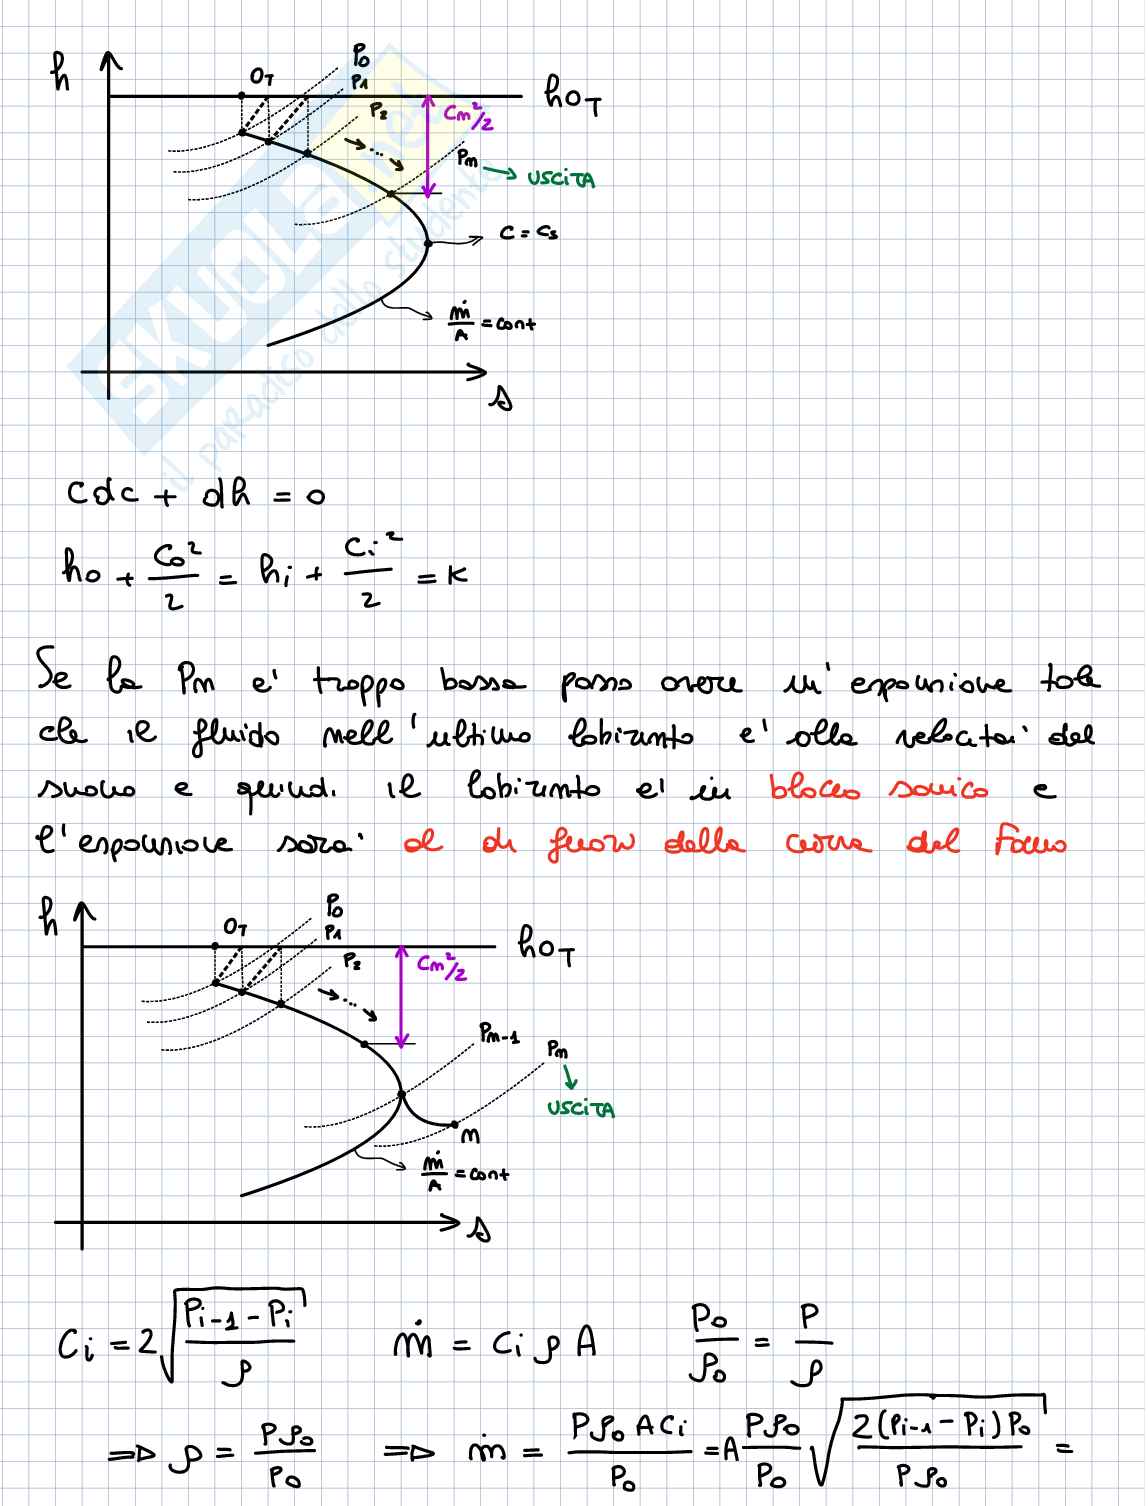 h
P0
OT
P1
hoT
P2
Cm²/2
Pm
USCITA
c = cs
ṁ/A = cont
s
SKUOLA.net
il paradiso dello studente
cdc + dh = 0
h0 + C0²/2 = hi + Ci²/2 = K
Se la Pm e' troppo bassa posso avere un' espansione tale
che il fluido nell'ultimo labirinto e' alla velocita' del
suono e quindi il labirinto e' in blocco sonico e
l'espansione sara' al di fuori della curva del Fanno
h
P0
OT
P1
hoT
P2
Cm²/2
Pm-1
Pm
USCITA
m
ṁ/A = cont
s
Ci = 2√((Pi-1 - Pi)/ρ)  ṁ = Ci ρ A  P0/ρ0 = P/ρ
⇒ ρ = Pρ0/P0  ⇒ ṁ = Pρ0 A Ci/P0 = A Pρ0/P0 √(2(Pi-1 - Pi)P0/Pρ0) =